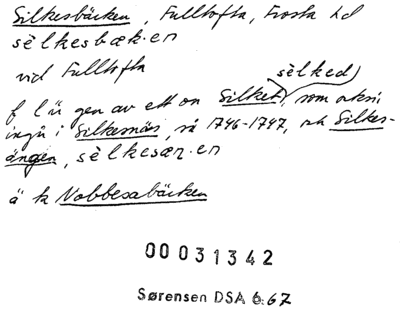 Silkesbäcken, Fulltofta, Frosta hd
sèlkesbæk·en
vid Fulltofta
sèlked
f l ü gen av ett on Silket, som också
ingå i Silkesnäs, så 1746-1747, och Silkes-
ängen, sèlkesæŋ·en
ä k Nobbesabäcken
00031342
Sørensen DSA 6:67